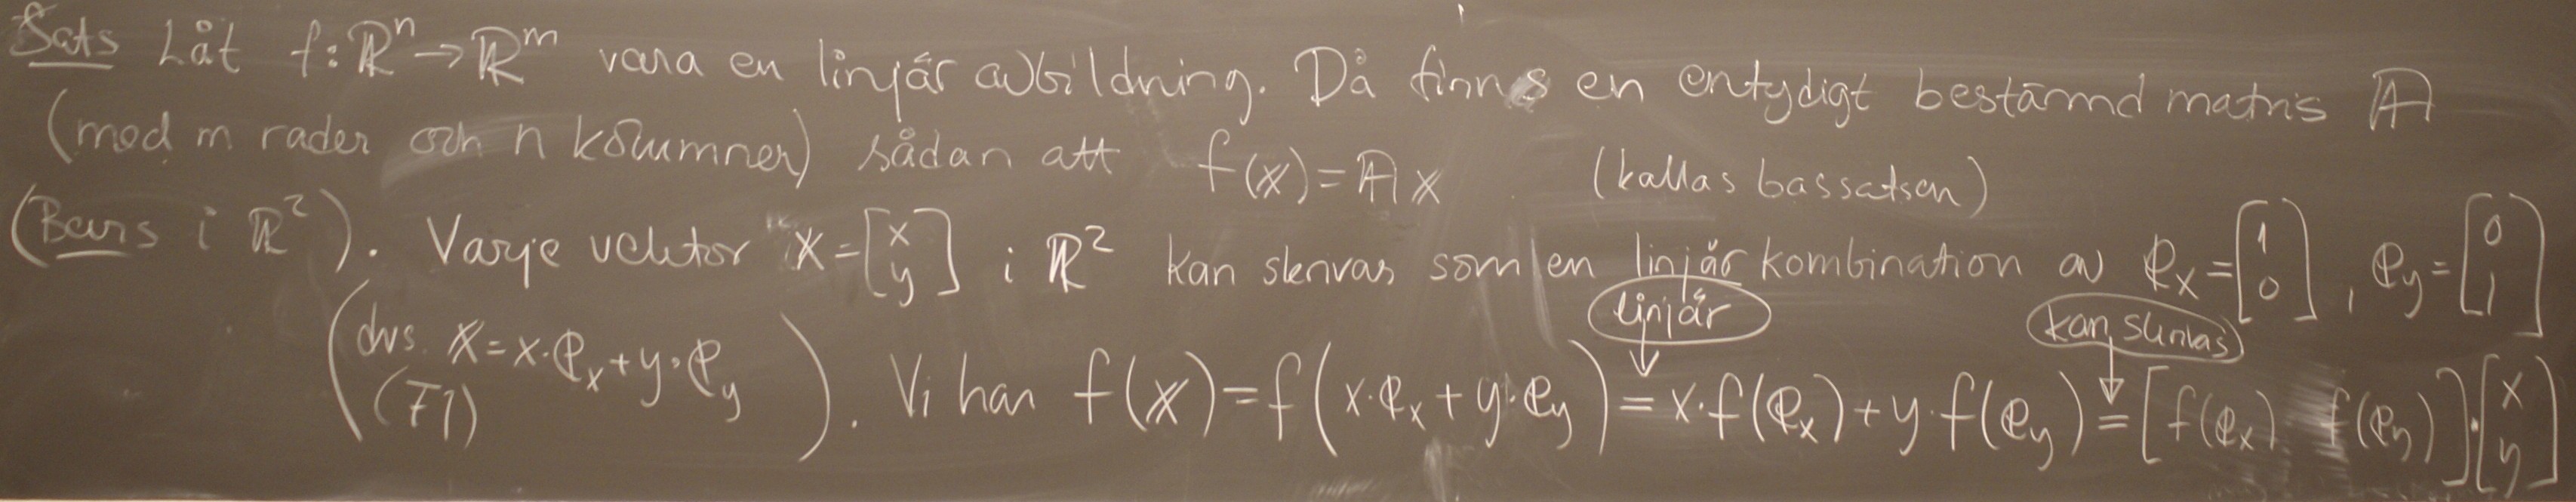 Sats Låt f: ℝⁿ → ℝᵐ vara en linjär avbildning. Då finns en entydigt bestämd matris 𝔸
(med m rader och n kolumner) sådan att f(𝕩) = 𝔸𝕩 (kallas bassatsen)
(Bevis i ℝ²). Varje vektor 𝕩 = [x y] i ℝ² kan skrivas som en linjär kombination av 𝕖ₓ = [1 0], 𝕖_y = [0 1]
linjär
kan skrivas
(dvs. 𝕩 = x·𝕖ₓ + y·𝕖_y). Vi har f(𝕩) = f(x·𝕖ₓ + y·𝕖_y) = x·f(𝕖ₓ) + y·f(𝕖_y) = [f(𝕖ₓ) f(𝕖_y)]·[x y]
(F1)